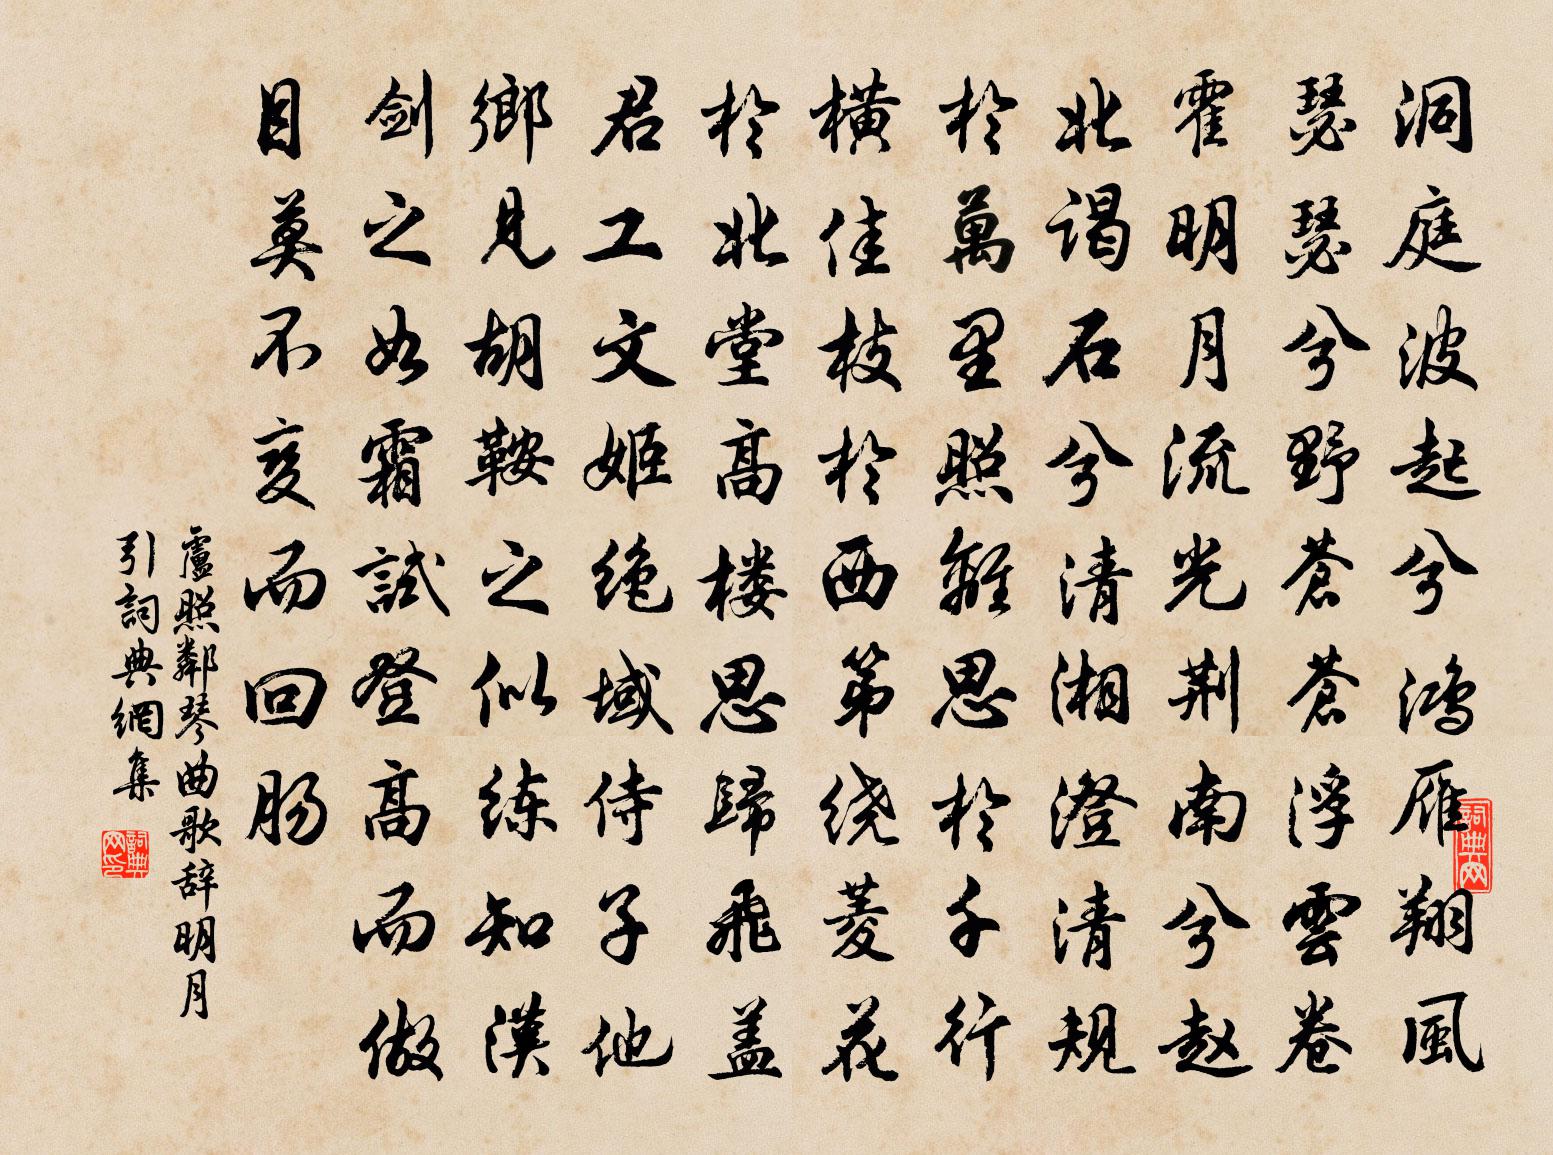 洞庭波起兮鸿雁翔風
瑟瑟兮野蒼蒼浮雲卷
霍明月流光荆南兮赵
北谒石兮清湘澄清規
於萬里照離思於千行
横佳枝於西第绕菱花
於北堂高楼思歸飛盖
君工文姬绝域侍子他
鄉見胡鞍之似练知漢
剑之如霜試登高而做
目莫不变而回肠
盧照鄰琴曲歌辞明月
引詞典網集
詞典网
詞典网印